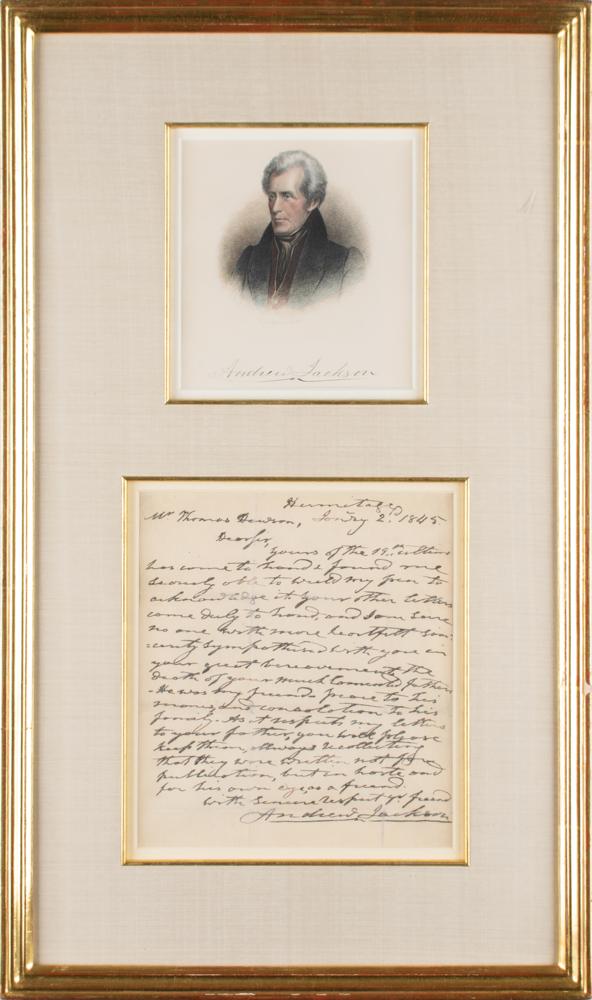 Andrew Jackson
Hermitage
Mr Thomas Dawson, Janry 2d. 1845
Dear sir,
yours of the 19th. ultimo
has come to hand & found me
scarcely able to wield my pen to
acknowledge it. your other letters
came duly to hand, and I am sure
no one with more heartfelt sin-
-cerity sympathised with you in
your great bereavement, the
death of your much lamented father.
-He was my friend- peace to his
manes, and consolation to his
family. As it respects my letters
to your father, you will please
keep them, always recollecting
that they were written not for
publication, but in haste and
for his own eye, as a friend.
with sincere respect yr friend
Andrew Jackson